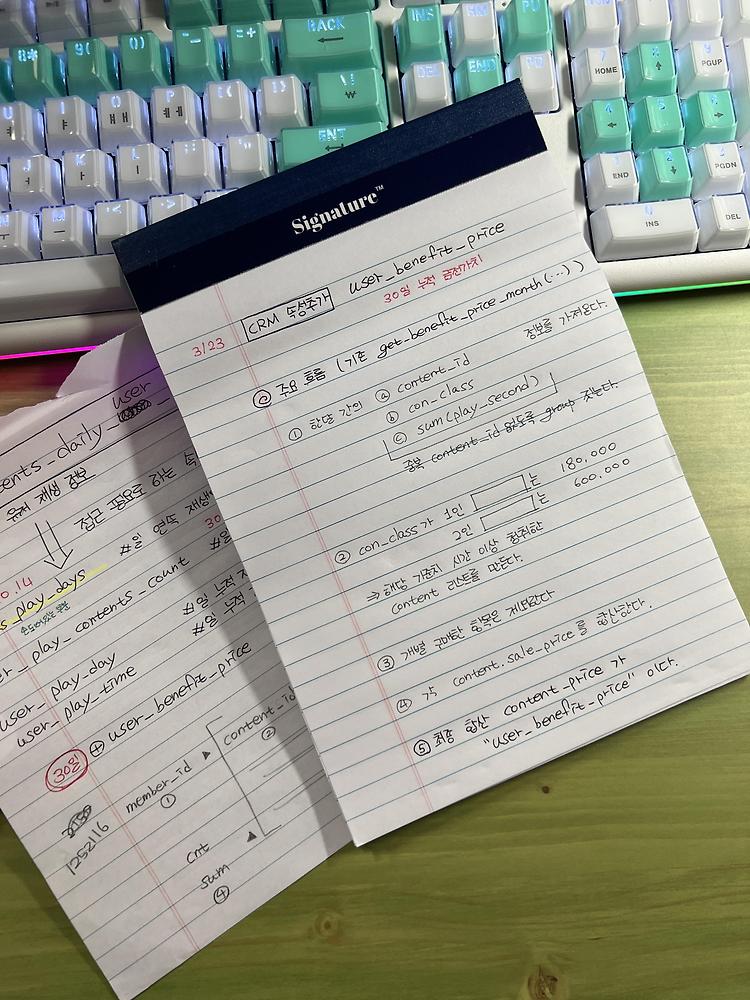 Signature™
3/23 CRM 속성추가 user_benefit_price
30일 누적 금전가치
◎ 주요 흐름 (기존 get_benefit_price_month(...))
① 한달 간의 ⓐ content_id 정보를 가져온다.
ⓑ con_class
ⓒ sum(play_second)
중복 content_id 없도록 group 짓는다.
② con_class가 1인 는 180,000
2인 는 600,000
⇒ 해당 기준치 시간 이상 청취한
content 리스트를 만든다.
③ 개별 구매한 항목은 제외한다
④ 각 content.sale_price를 합산한다.
⑤ 최종 합산 content_price 가
"user_benefit_price" 이다.
ents_daily_user
유저 재생 정보
접근 필요로 하는 속
0.14
s_play_days
#일 연속 재생
30
er_play_contents_count #일
user_play_day #일 누적 재
user_play_time #일 누적
30일 ⊕ user_benefit_price
member_id ▶ content_id
① ②
1252116
cnt ▶
sum
④
BACK
ENT
INS
DEL
END
PU
HOME
PGUP
END
PGDN
INS
DEL